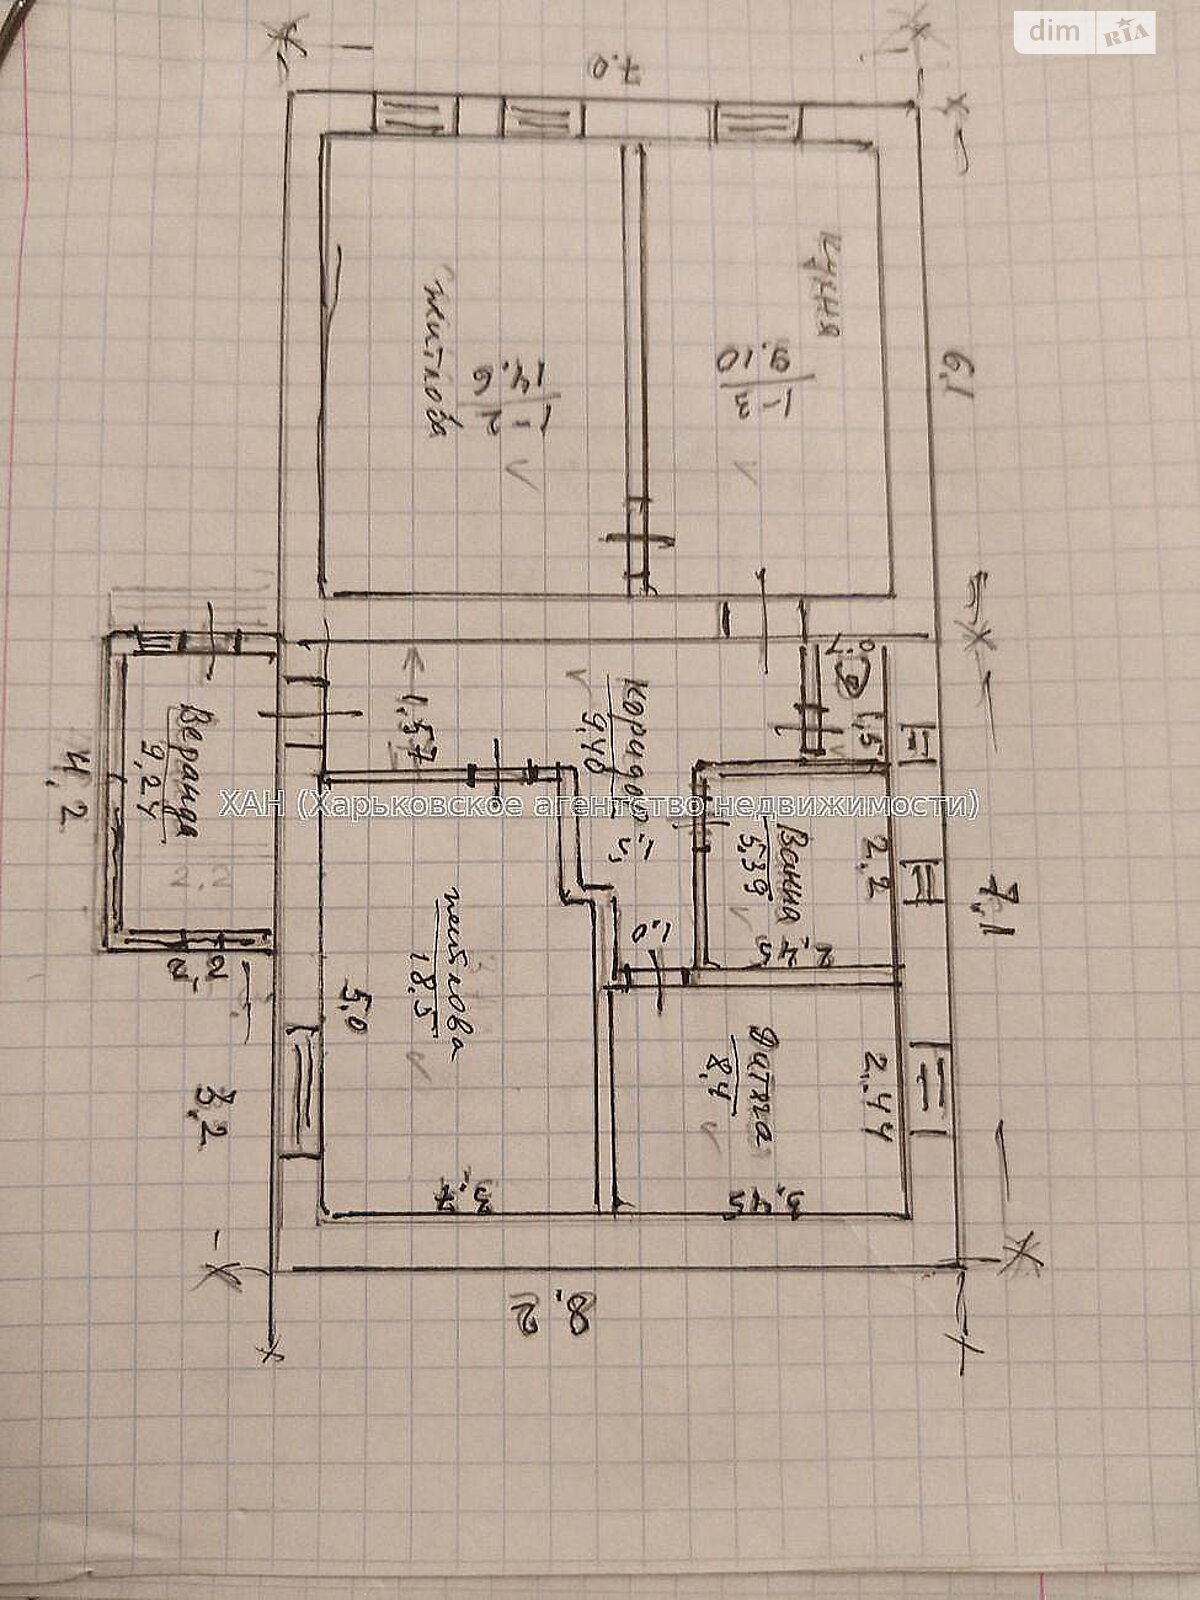 dim RIA
7.0
кухня
9.10
1-3
6,1
житлова
14.6
1-2
0.7
1,5
1,57
Коридор
9,40
Веранда
9,24
4,2
2,2
ХАН (Харьковское агентство недвижимости)
Ванна
5,39
2,2
2,45
7,1
1.0
житлова
18,5
5,0
2,2
3,2
8,4
2,44
3,7
3,45
8,2